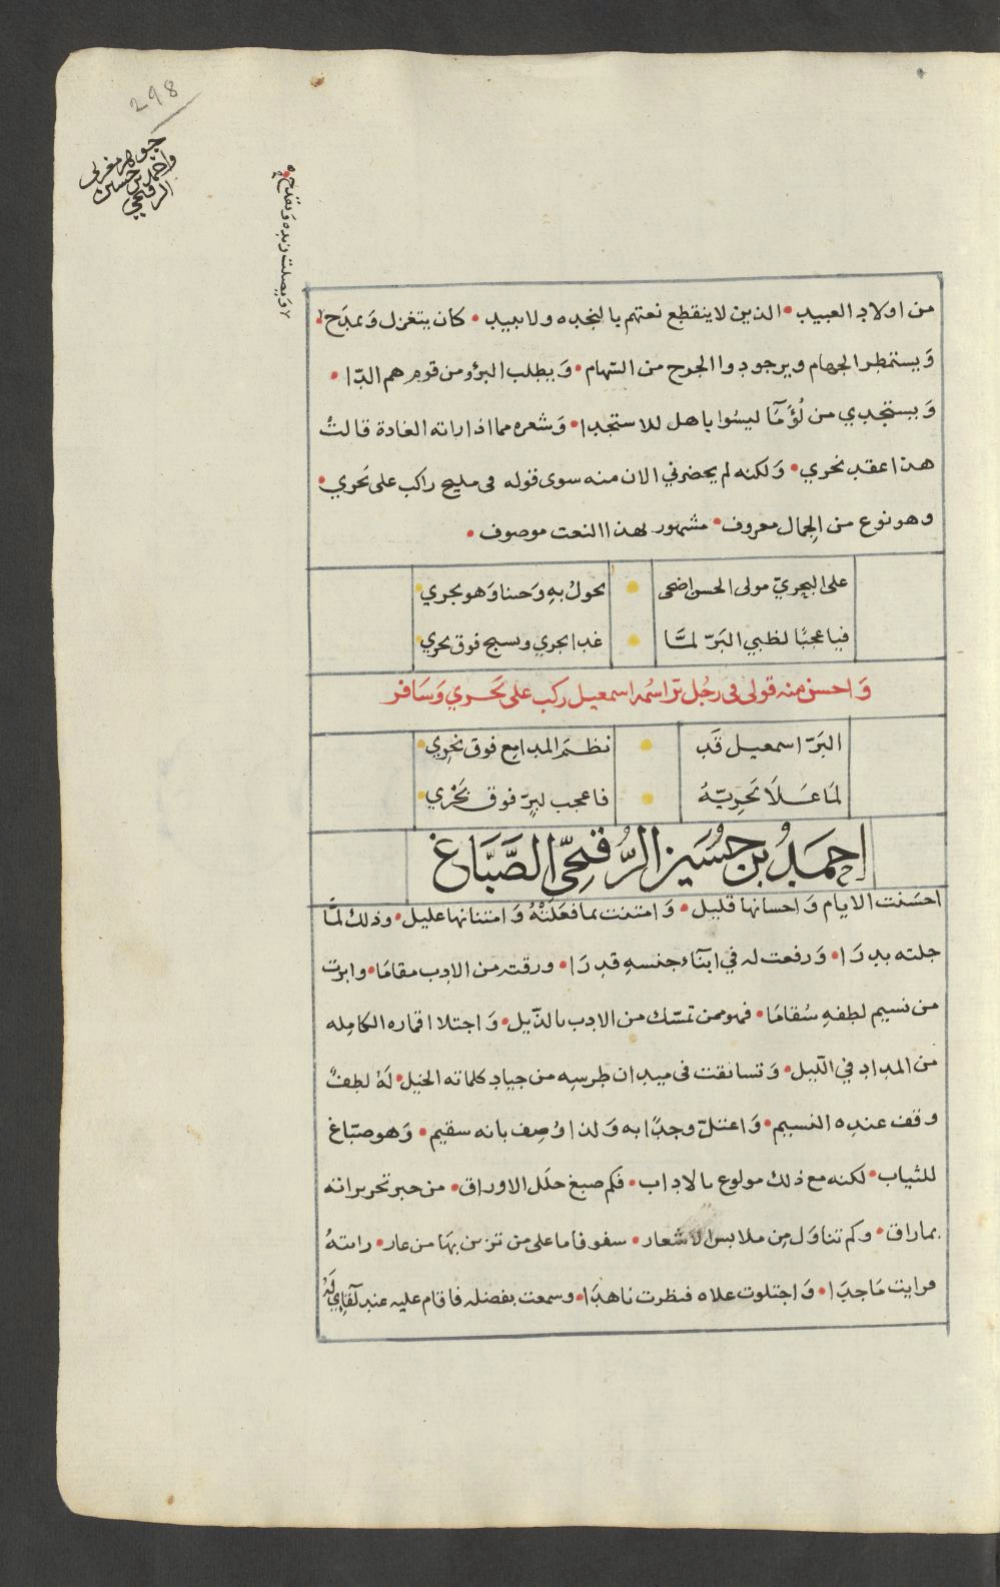 298
جوهر مغربي
واحمد بن حسين
الرقيحي
ويصلت زنده ويقدح
من اولاد العبيد • الذين لا ينقطع نعتهم بالنجده ولا يبيد • كان يتغزل ويمدح
ويستمطر الجهام ويرجو دوا الجرح من السهام • ويطلب البرؤ من قوم هم الدا •
ويستجدي من لؤمآ ليسوا باهل للاستجدا • وشعره مما اذا راته الغادة قالت
هذا عقد نحري • ولكنه لم يحضرني الان منه سوى قوله فى مليح راكب على بحري •
وهو نوع من الجمال معروف • مشهور بهذا النعت موصوف •
على البحري مولى الحسن اضحى • يحول به وحنا وهو يجري
فيا عجبا لظبي البر لما • غدا يجري ويسبح فوق بحري
واحسن منه قولى فى رجل تر اسمه اسمعيل ركب على بحري وسافر
البر اسمعيل قد • نظم المدامع فوق نحري
لما علا بحرية • فاعجب لبر فوق بحري
احمد بن حسين الرقيحي الصباغ
احسنت الايام واحسانها قليل • وامتنت بما فعلته وامتنانها عليل • وذلك لما
جلته بدرا • ورفعت له في ابنآء جنسه قدرا • ورقته من الادب مقاما • وابرت
من نسيم لطفه سقاما • فهو ممن تمسك من الادب بالذيل • واجتلا اقماره الكامله
من المداد في الليل • وتسابقت فى ميدان طرسه من جياد كلماته الخيل • له لطف
وقف عنده النسيم • واعتل وجدا به ولذا وصف بانه سقيم • وهو صباغ
للثياب • لكنه مع ذلك مولوع بالاداب • فكم صبغ حلل الاوراق • من حبر تحريراته
بما راق • وكم تناول من ملابس الاشعار • سفوفا ما على من تزين بها من عار • رايته
فرايت ماجدا • واجتلوت علاه فنظرت ناهدا • وسمعت بفضله فاقام عليه عند لقاي له